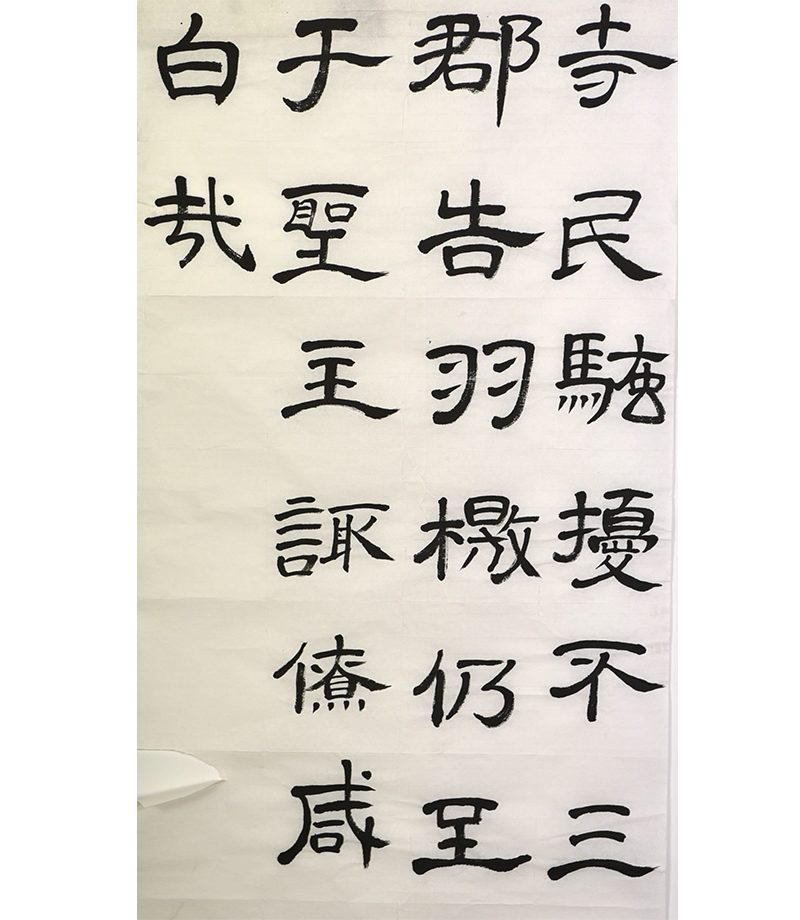 寺民騷擾不三
郡告羽檄仍至
于聖主諏僚咸
白哉